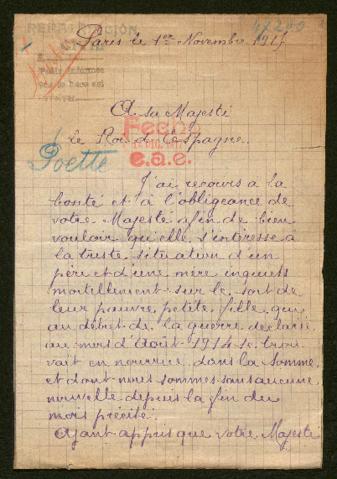 47200
Paris le 1er Novembre 1917
A sa Majesté
le Roi d'Espagne.
Fech
e.a.e.
Poette
J'ai recours a la
bonté et à l'obligeance de
votre Majesté afin de bien
vouloir qu'elle s'intéresse a
la triste situation d'un
père et d'une mère inquiets
mortellement sur le sort de
leur pauvre petite fille qui
au début de la guerre déclarée
au mois d'Août 1914 se trou
vait en nourrice dans la Somme,
et dont nous sommes sans aucune
nouvelle depuis la fin du
mois précité.
Ayant appris que votre Majesté